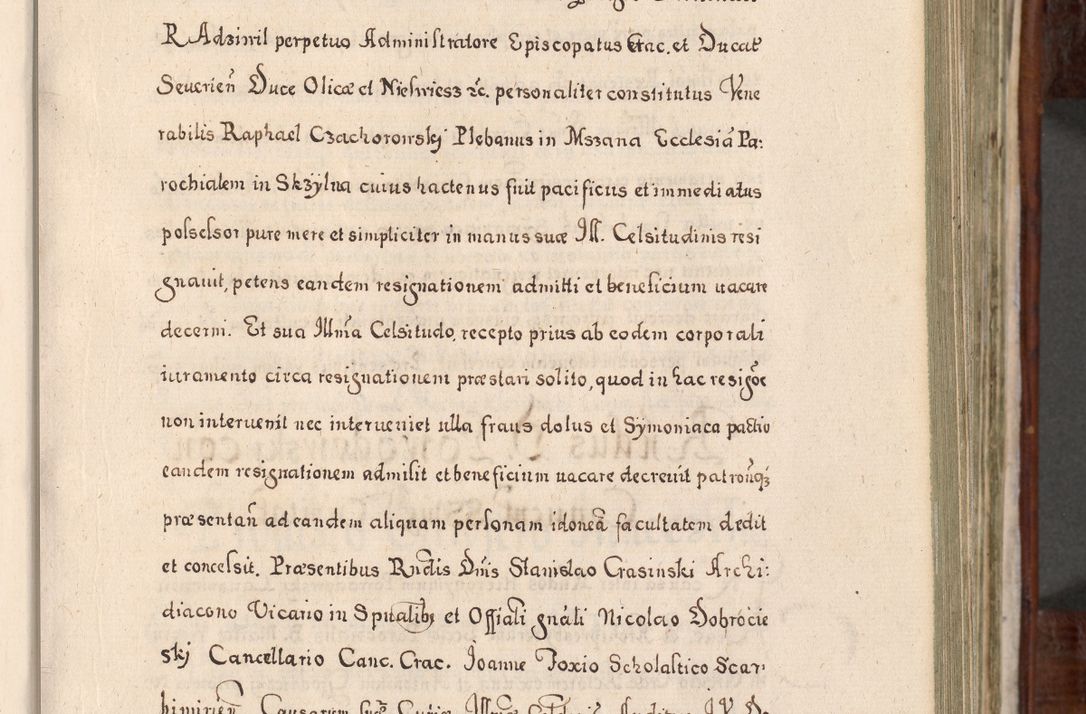 RAdziwil perpetuo Administratore Episcopatus Crac. et Ducat9
Seuerieñ Duce Olicæ et Nieswiesz etc. personaliter constitutus Vene
rabilis Raphael Czachorowskÿ Plebanus in Mszana Ecclesiã Pa:
rochialem in Skzÿlna cuius hactenus fuit pacificus et immediatus
possessor pure mere et simpliciter in manus suæ Ill. Celsitudinis resi
gnauit, petens eandem resignationem admitti et beneficium uacare
decerni. Et sua Illma Celsitudo, recepto prius ab eodem corporali
iuramento circa resignationem præstari solito, quod in hac resigõe
non interuenit nec interueniet ulla fraus dolus et Symoniaca pactio
eandem resignationem admisit et beneficium uacare decreuit patronq3
præsentañ ad eandem aliquam personam idoneã facultatem dedit
et concessit. Præsentibus Rndis Dnis Stanislao Crasinski Archi:
diacono Vicario in Spūalib3 et Offiali gnáli Nicolao Dobrocie
skÿ Cancellario Canc. Crac. Joanne Foxio Scholastico Scar:
bimirieñ Causarum